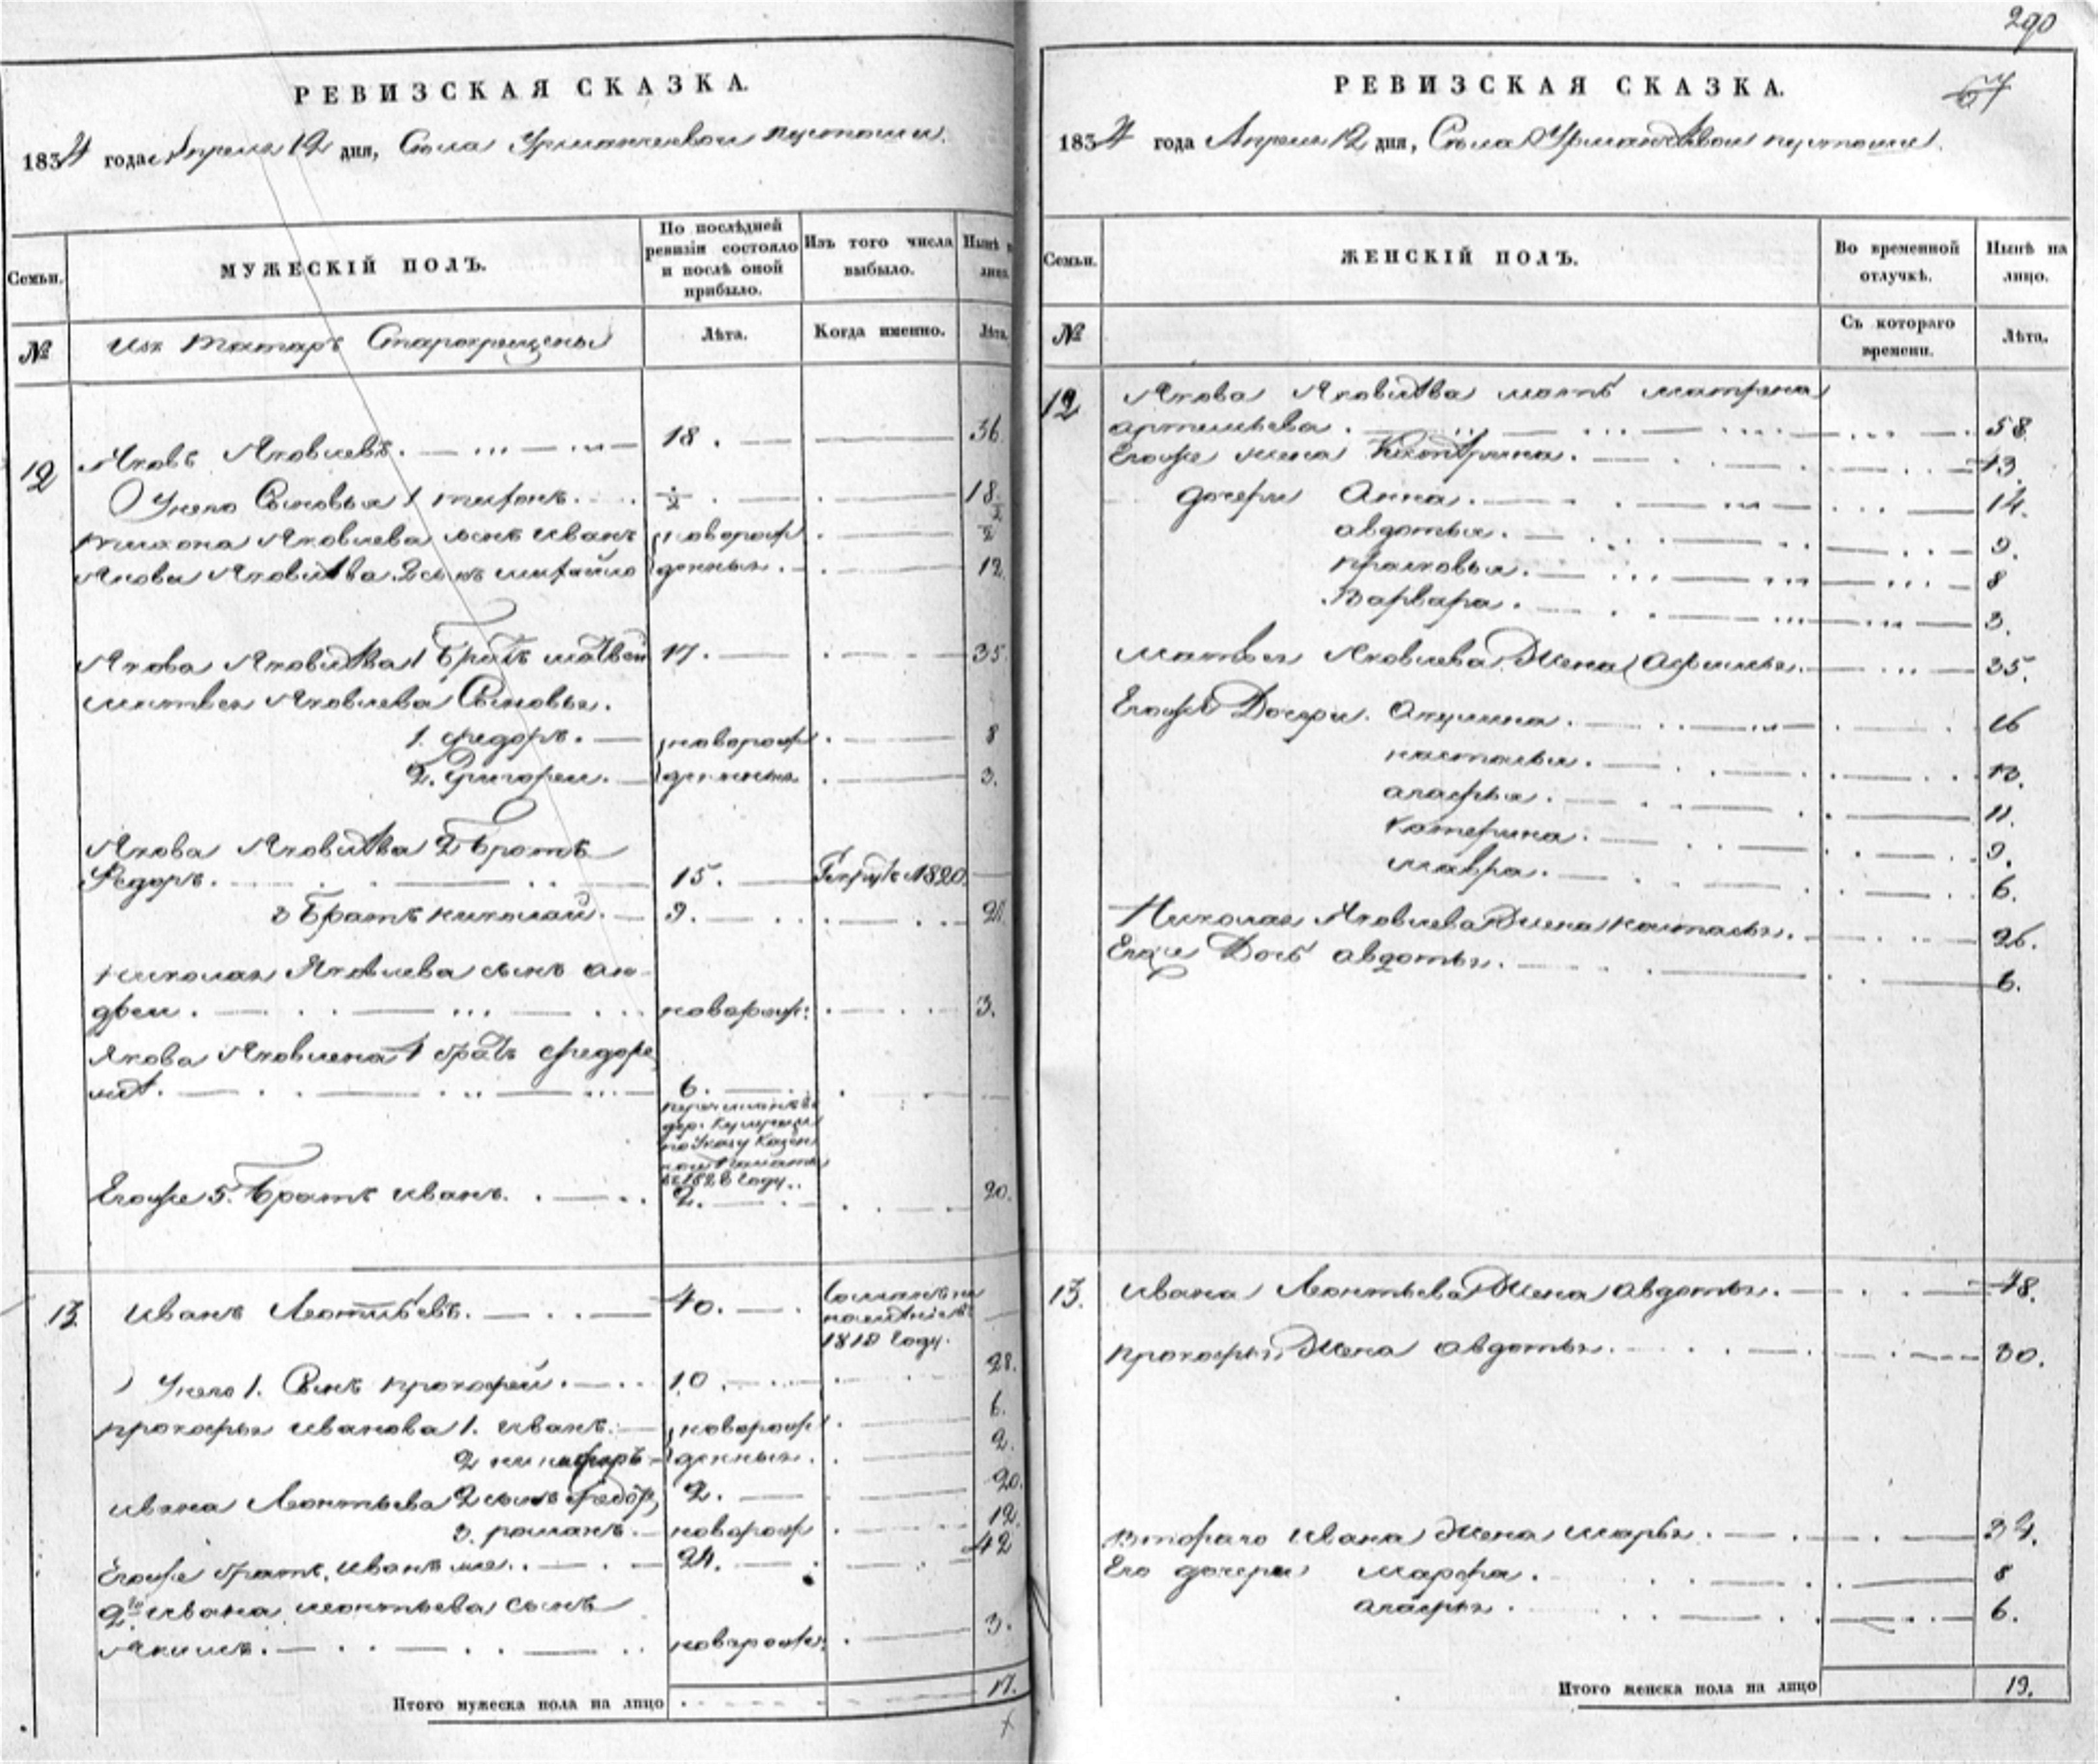 РЕВИЗСКАЯ СКАЗКА.
1834 года Апреля 12 дня, Села Урманчеевой пустоши.
Семьи.
МУЖЕСКІЙ ПОЛЪ.
По послѣдней ревизіи состояло и послѣ оной прибыло.
Изъ того числа выбыло.
Нынѣ на лицо
№
Изъ татаръ Старокрещены
Лѣта.
Когда именно.
Лѣта.
12
Яковъ Яковлевъ. 18. 36.
У него Сыновья 1 тихонъ. 1/2 18 1/2
тихона Яковлева сынъ иванъ новорож 1/2
Якова Яковлева 2 сынъ михайло денныя. 12.
Якова Яковлева 1 Братъ матвей 17. 35.
матвея Яковлева Сыновья.
1. федоръ. новорож 8
2. Григорей. денныя 3.
Якова Яковлева 2 Братъ
Федоръ. 15. 1820.
3 Братъ николай. 9.
николая Яковлева сынъ ан-
дреи. новорож: 3.
Якова Яковлева 4 братъ федоръ
6.
перечисленъ въ
дер.
по Указу Казен
ной Палаты
въ 1826 году.
Егоже 5. Братъ иванъ. 2. 20.
13.
иванъ Леонтьевъ. 40.
1818 Году.
У него 1. Сынъ прокофей. 10. 28.
прокофья иванова 1. иванъ. новорож 6.
2 никифоръ денныя. 2.
ивана Леонтьева 2 сынъ федоръ, 2. 20.
3. романъ. новорож 12.
Егоже братъ, иванъ же. 24. 42
2го ивана леонтьева сынъ
Якимъ. новорож: 3.
Итого мужеска пола на лицо 17.
290
67
РЕВИЗСКАЯ СКАЗКА.
1834 года Апреля 12 дня, Села Урманчеевой пустоши.
Семьи.
ЖЕНСКІЙ ПОЛЪ.
Во временной отлучкѣ.
Нынѣ на лицо.
№
Съ котораго времени.
Лѣта.
12
Якова Яковлева мать матрена
артемьева. 58.
Егоже жена Катерина. 43.
дочери Анна. 14.
авдотья. 9.
прасковья. 8
Варвара. 3.
матвея Яковлева Жена Афимья. 35.
Егоже Дочери. Акулина. 16
настасья. 13.
агафья. 11.
катерина. 9.
мавра. 6.
Николая Яковлева Жена настасья. 26.
Егоже Дочь авдотья. 6.
13.
ивана Леонтьева Жена авдотья. 48.
прокофья Жена авдотья. 30.
Втораго ивана жена марья. 34.
Его дочери марфа. 8
агафья. 6.
Итого женска пола на лицо 19.